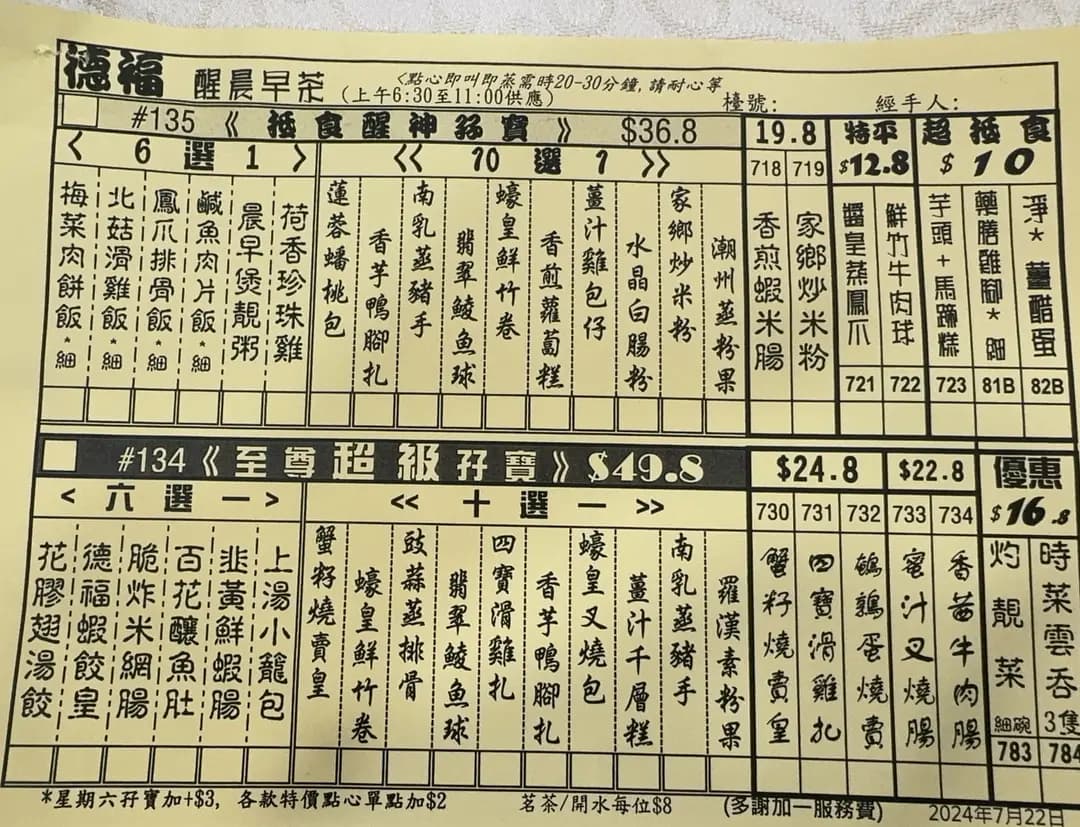 德福 醒晨早茶
<點心即叫即蒸需時20-30分鐘,請耐心等
(上午6:30至11:00供應)
檯號: 經手人:
#135 《 抵食醒神孖寶 》 $36.8
< 6 選 1 >
梅菜肉餅飯*細
北菇滑雞飯*細
鳳爪排骨飯*細
鹹魚肉片飯*細
晨早煲靚粥
荷香珍珠雞
<< 10 選 1 >>
蓮蓉蟠桃包
香芋鴨腳扎
南乳蒸豬手
翡翠鯪魚球
蠔皇鮮竹卷
香煎蘿蔔糕
薑汁雞包仔
水晶白腸粉
家鄉炒米粉
潮州蒸粉果
19.8
718 香煎蝦米腸
719 家鄉炒米粉
特平 $12.8
醬皇蒸鳳爪 721
鮮竹牛肉球 722
超抵食 $10
芋頭+馬蹄糕 723
藥膳雞腳*細 81B
淨*薑醋蛋 82B
#134 《至尊超級孖寶》 $49.8
< 六 選 一 >
花膠翅湯餃
德福蝦餃皇
脆炸米網腸
百花釀魚肚
韭黃鮮蝦腸
上湯小籠包
<< 十 選 一 >>
蟹籽燒賣皇
蠔皇鮮竹卷
豉蒜蒸排骨
翡翠鯪魚球
四寶滑雞扎
香芋鴨腳扎
蠔皇叉燒包
薑汁千層糕
南乳蒸豬手
羅漢素粉果
$24.8
730 蟹籽燒賣皇
731 四寶滑雞扎
732 鵪鶉蛋燒賣
$22.8
733 蜜汁叉燒腸
734 香茜牛肉腸
優惠 $16.8
灼靚菜 細碗 783
時菜雲吞3隻 784
*星期六孖寶加+$3, 各款特價點心單點加$2
茗茶/開水每位$8
(多謝加一服務費)
2024年7月22日